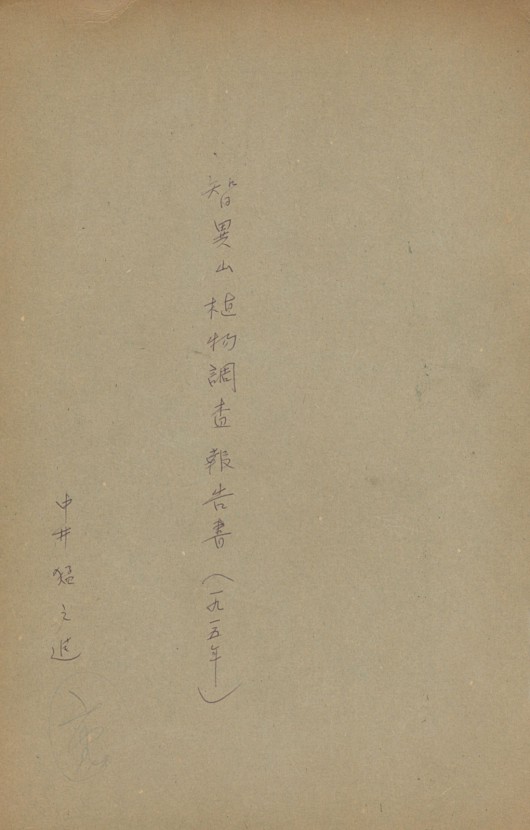 智異山植物調査報告書(一九一五年)
中井猛之進